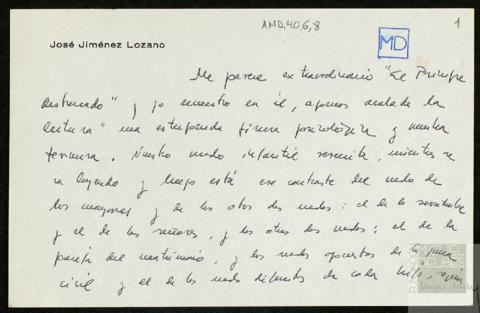 AMD,40,6,8
1
MD
José Jiménez Lozano
Me parece extraordinario "El Príncipe
destronado" y yo encuentro en él, apenas acabada la
lectura una estupenda finura psicológica y mucha
ternura. Nuestro mundo infantil resucita, mientras se
va leyendo y luego está ese contraste del mundo de
los mayores y de los otros dos mundos: el de la servidumbre
y el de los señores, y los otros dos mundos: el de la
pareja del matrimonio, y los mundos opuestos de la guerra
civil y el de los mundos diferentes de cada niño,